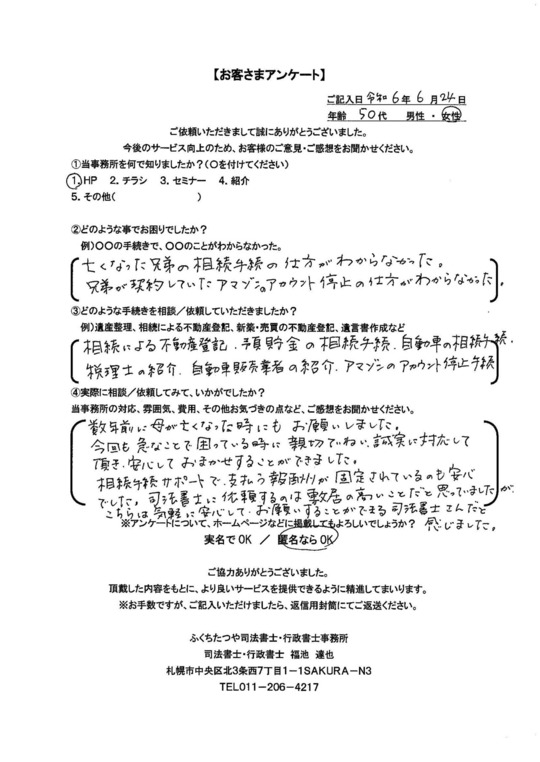 【お客さまアンケート】
ご記入日 令和6年 6月 24日
年齢 50代 男性 ・ 女性
ご依頼いただきまして誠にありがとうございました。
今後のサービス向上のため、お客様のご意見・ご感想をお聞かせください。
①当事務所を何で知りましたか？（○を付けてください）
1.HP 2.チラシ 3.セミナー 4.紹介
5.その他( )
②どのような事でお困りでしたか？
例）○○の手続きで、○○のことがわからなかった。
亡くなった兄弟の相続手続の仕方がわからなかった。
兄弟が契約していたアマゾンのアカウント停止の仕方がわからなかった。
③どのような手続きを相談／依頼していただきましたか？
例）遺産整理、相続による不動産登記、新築・売買の不動産登記、遺言書作成など
相続による不動産登記、予貯金の相続手続、自動車の相続手続、
税理士の紹介、自動車販売業者の紹介、アマゾンのアカウント停止手続
④実際に相談／依頼してみて、いかがでしたか？
当事務所の対応、雰囲気、費用、その他お気づきの点など、ご感想をお聞かせください。
数年前に母が亡くなった時にもお願いしました。
今回も急なことで困っている時に親切でねい、誠実に対応して
頂き、安心しておまかせすることができました。
相続手続サポートで、支払う報酬が固定されているのも安心
でした。司法書士に依頼するのは敷居の高いことだと思っていましたが、
こちらは気軽に安心してお願いすることができる司法書士さんだと
感じました。
※アンケートについて、ホームページなどに掲載してもよろしいでしょうか？
実名でOK ／ 匿名ならOK
ご協力ありがとうございました。
頂戴した内容をもとに、より良いサービスを提供できるように精進してまいります。
※お手数ですが、ご記入いただけましたら、返信用封筒にてご返送ください。
ふくちたつや司法書士・行政書士事務所
司法書士・行政書士 福池 達也
札幌市中央区北3条西7丁目1－1SAKURA－N3
TEL011－206－4217